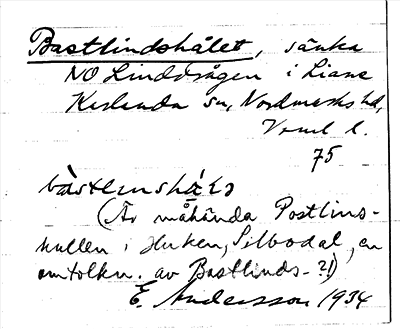 Bastlindshålet, sänka
NO Lindvågen i Liane
Karlanda sn, Nordmarks hd,
Vrml l.
75
(Är måhända Postlins-
kullen i Huken, Silbodal, en
omtolkn. av Bastlinds- ?!)
E. Andersson 1934